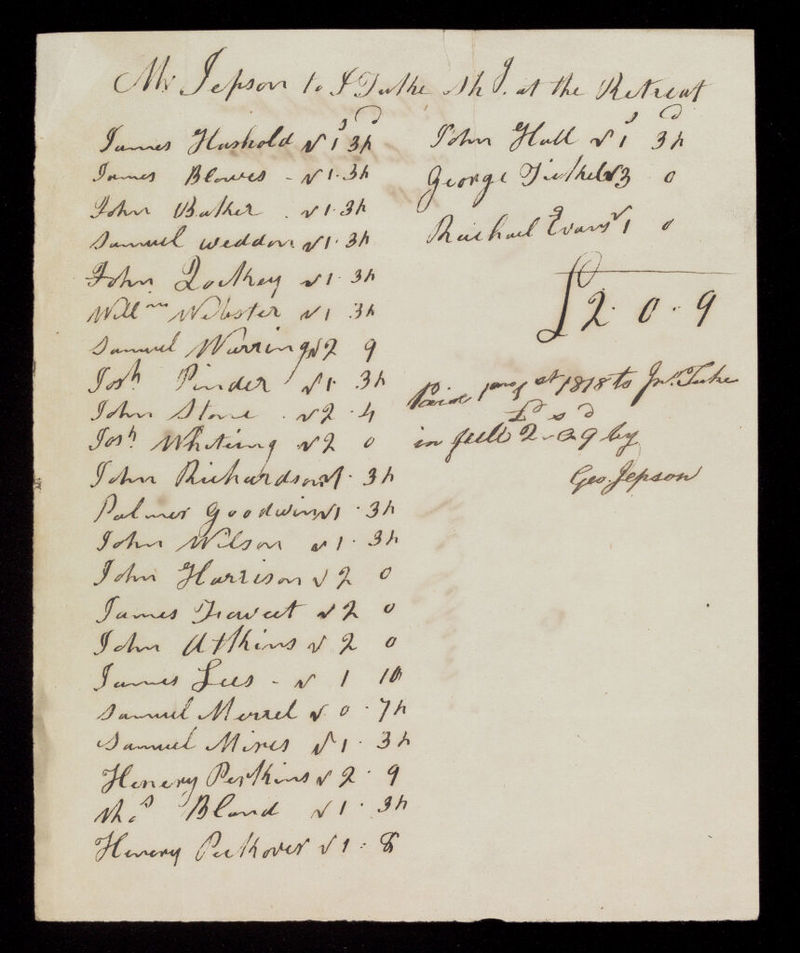 Mr Jepson to J Tuke at the Retreat
s d
James Hashold √ 1 3h
James Blowes - √ 1 · 3h
John Baker . √ 1 · 3h
Samuel weddon √ 1 · 3h
John √ 1 · 3h
Willm Webster √ 1 3h
Samuel Warring √ 2 9
Josh Pinder √ 1 · 3h
John Stone . √ 2 · 4
Josh Whiting √ 2 0
John Richardson √ 1 · 3h
Palmer Goodwin √ 1 · 3h
John Wilson √ 1 · 3h
John Harrison √ 2 0
James √ 2 0
John Atkins √ 2 0
James Lees - √ 1 10
Samuel Merrel √ 0 · 7h
Samuel Mires √ 1 · 3h
Henery Perkins √ 2 · 9
Thos Bland √ 1 · 3h
Henery Peckover √ 1 · 8
s d
John Hall √ 1 3h
George √ 3 0
Rachael Evans √ 1 0
£2 · 0 · 9
Paid 1818 to Jn. Tuke
£ s d
in full 2 - 0 9 by
Geo. Jepson